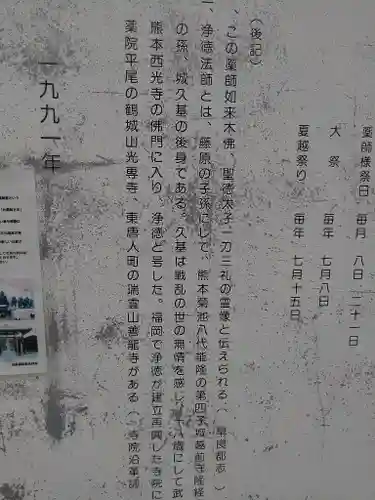 薬師様祭日 毎月 八日 二十一日
大祭 毎年 七月八日
夏越祭り 毎年 七月十五日
(後記)
一、この薬師如来木佛、聖徳太子一刀三礼の霊像と伝えられる。( 早良郡志 )
一、浄徳法師とは、藤原の子孫にして、熊本菊池八代能隆の第四子城越前守隆経
の孫、城久基の後身である。久基は戦乱の世の無情を感じ、十八歳にして武
熊本西光寺の佛門に入り、浄徳と号した。福岡で浄徳が建立再興した寺院に
薬院平尾の鶴城山光専寺、東唐人町の瑞雲山善龍寺がある( 寺院沿革調
一九九一年